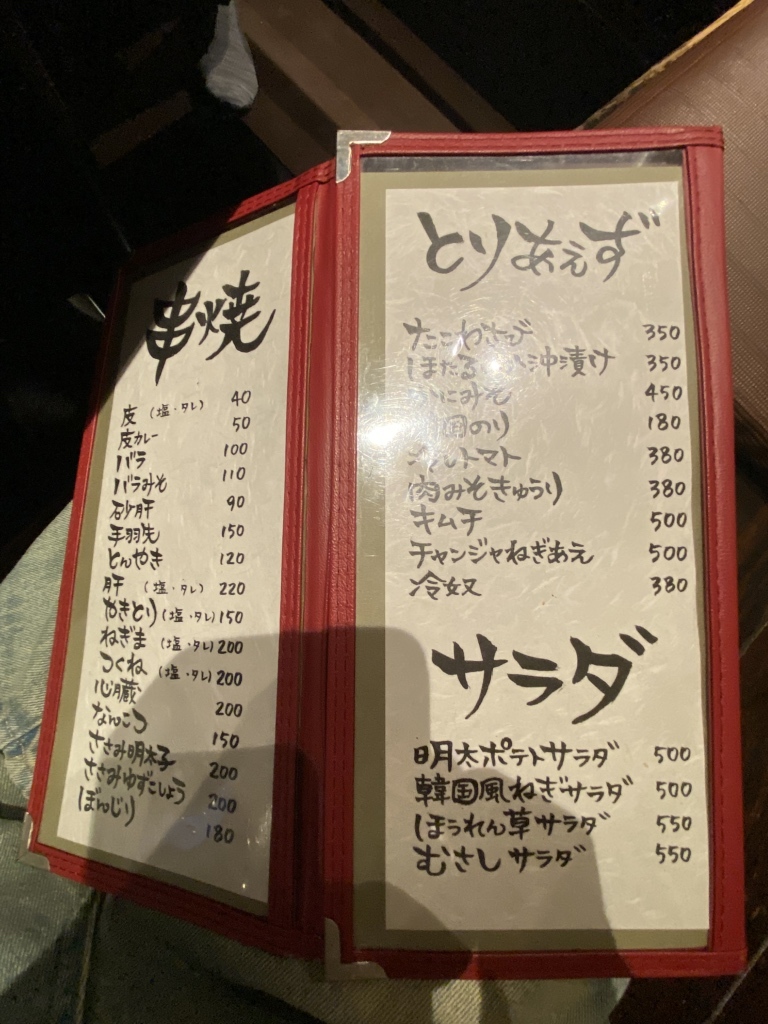 串焼
皮 (塩・タレ) 40
皮カレー 50
バラ 100
バラみそ 110
砂肝 90
手羽先 150
とんやき 120
肝 (塩・タレ) 220
やきとり (塩・タレ) 150
ねぎま (塩・タレ) 200
つくね (塩・タレ) 200
心臓 200
なんこつ 150
ささみ明太子 200
ささみゆずこしょう 200
ぼんじり 180
とりあえず
たこわさび 350
ほたるいか沖漬け 350
かにみそ 450
国のり 180
トマト 380
肉みそきゅうり 380
キムチ 500
チャンジャねぎあえ 500
冷奴 380
サラダ
明太ポテトサラダ 500
韓国風ねぎサラダ 500
ほうれん草サラダ 550
むさしサラダ 550